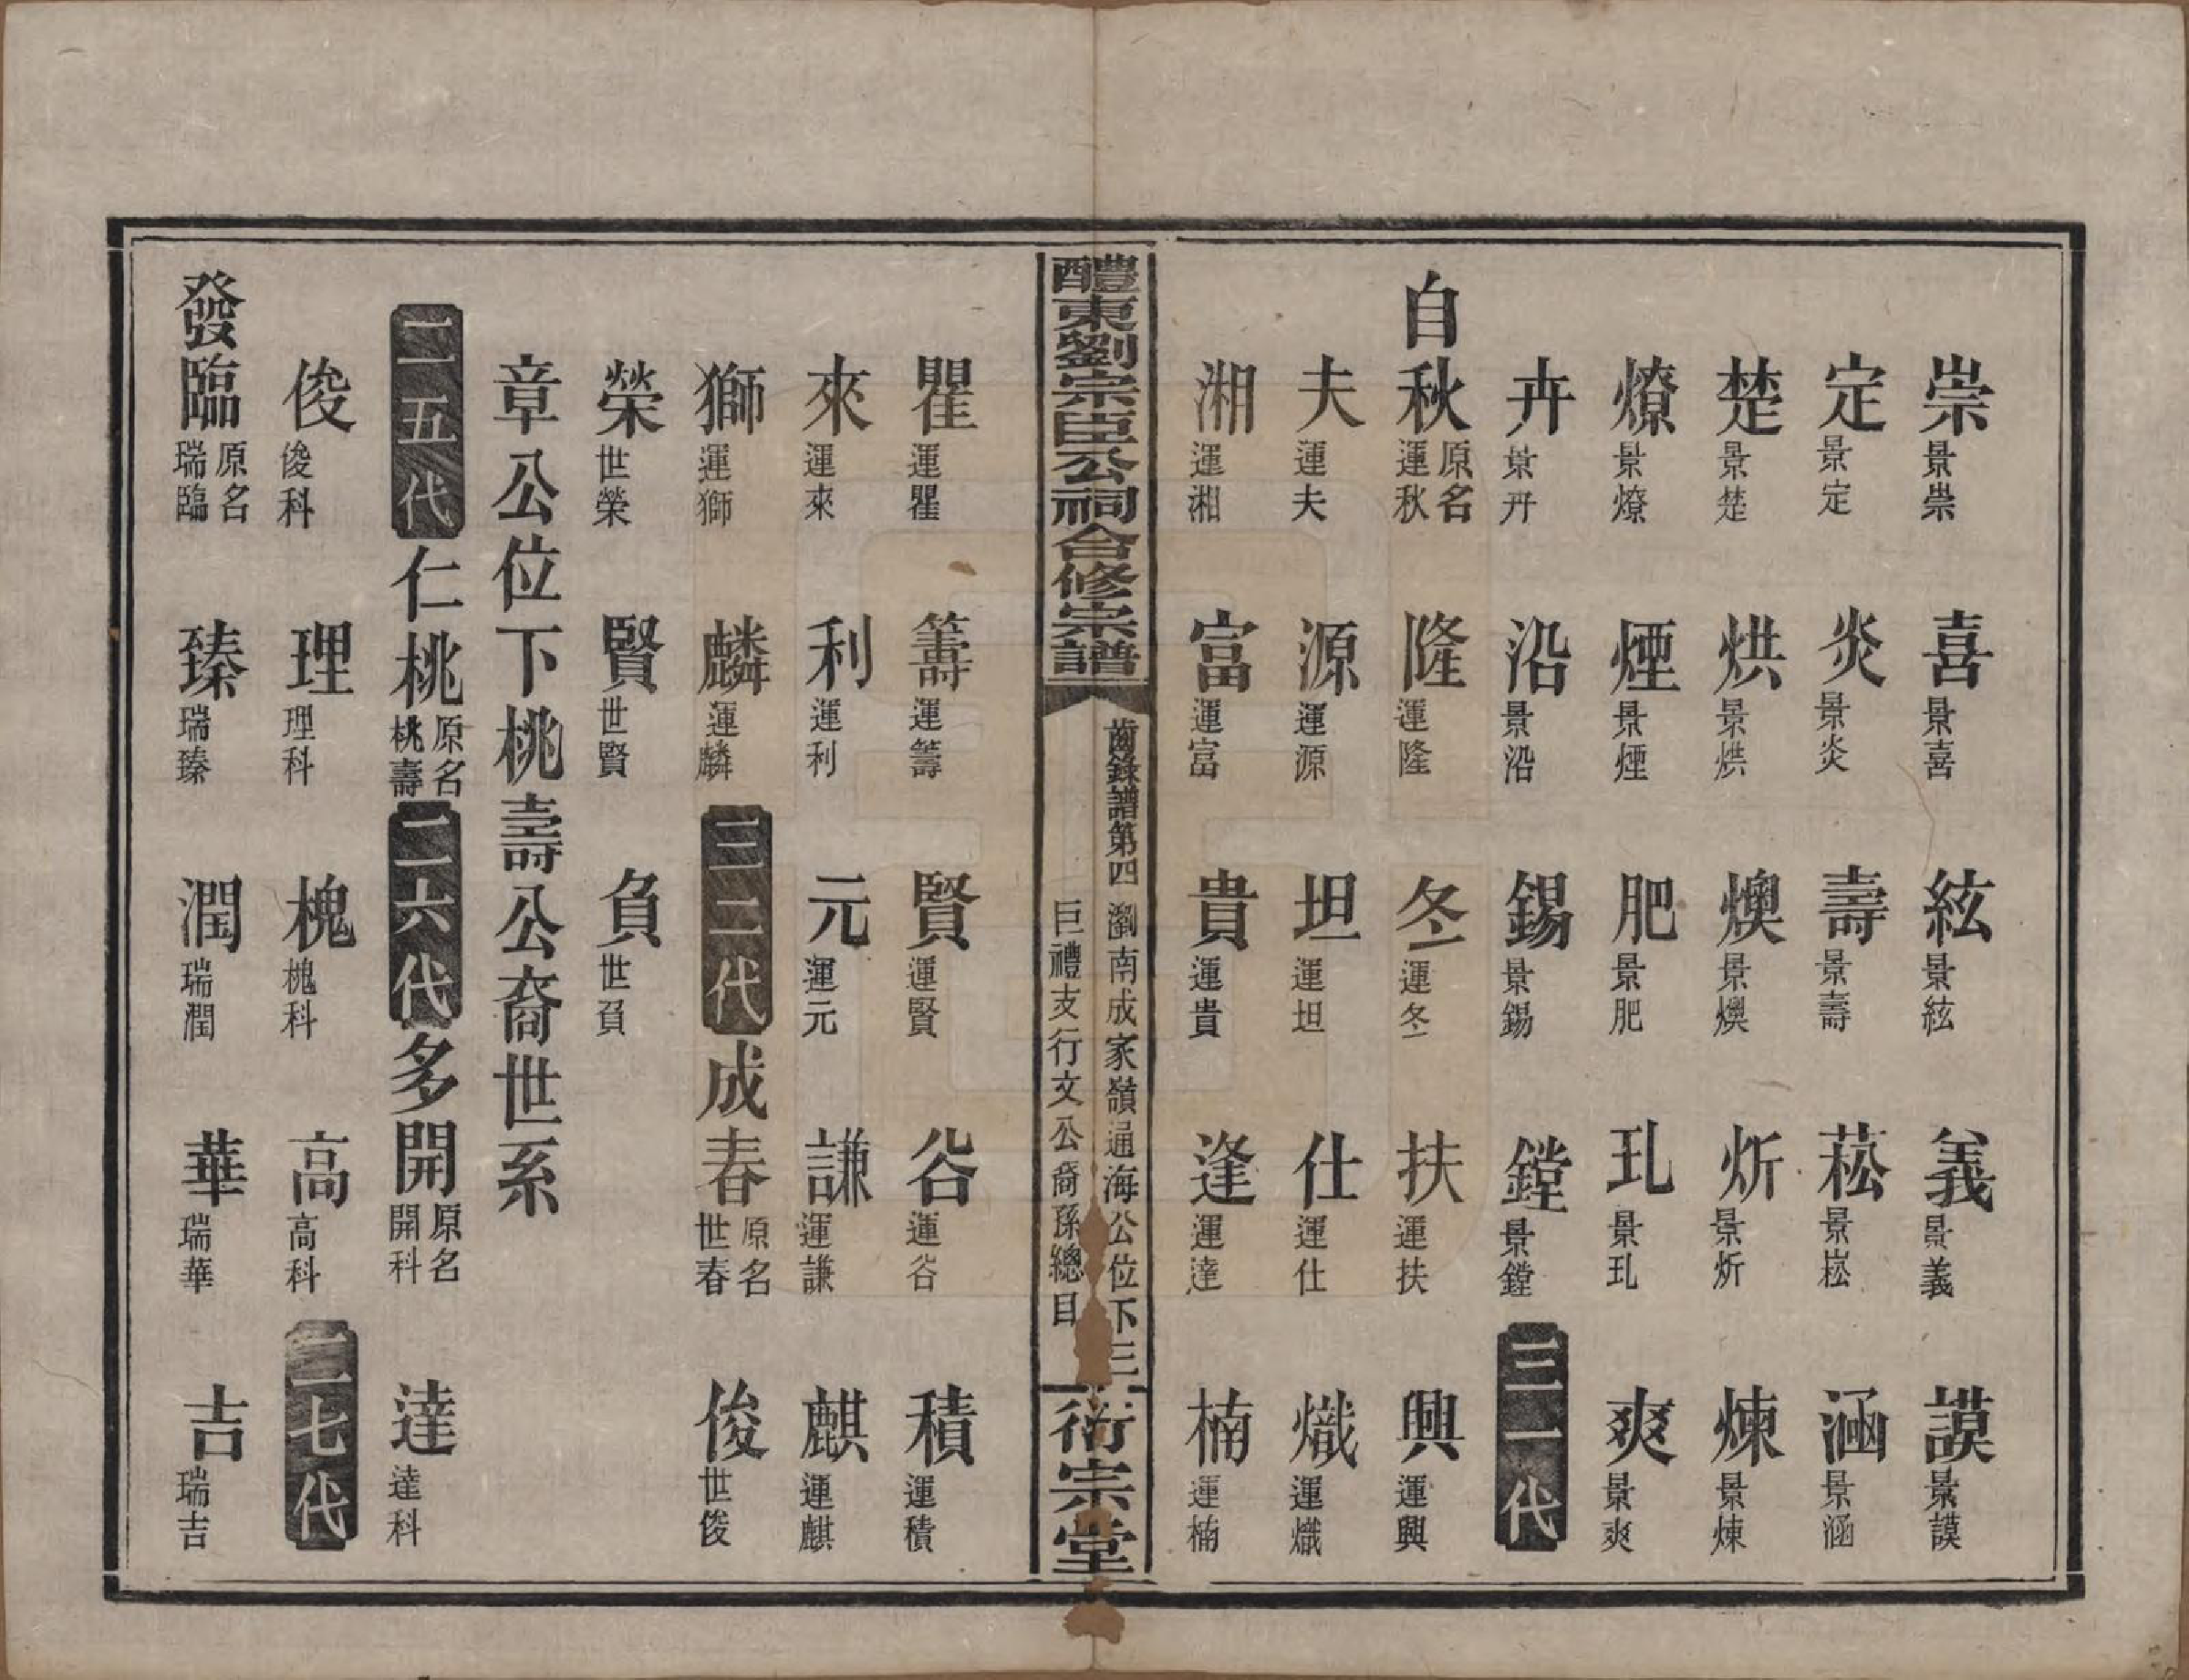 崇景崇 喜景喜 絃景絃 義景義 謨景謨
定景定 炎景炎 壽景壽 菘景菘 涵景涵
楚景楚 烘景烘 燠景燠 炘景炘 煉景煉
燎景燎 煙景煙 肥景肥 玌景玌 爽景爽
卉景卉 沿景沿 錫景錫 鏜景鏜 三一代
自秋原名運秋 隆運隆 冬運冬 扶運扶 興運興
夫運夫 源運源 坦運坦 仕運仕 熾運熾
湘運湘 富運富 貴運貴 逢運達 楠運楠
醴東劉宗臣公祠合修宗譜
齒錄譜第四 瀏南成家嶺通海公位下三
巨禮支行文公裔孫總目
衍宗堂
瞿運瞿 籌運籌 賢運賢 谷運谷 積運積
來運來 利運利 元運元 謙運謙 麒運麒
獅運獅 麟運麟 三二代 成春原名世春 俊世俊
榮世榮 賢世賢 負世負
章公位下桃壽公裔世系
二五代 仁桃原名桃壽 二六代 多開原名開科 達達科
俊俊科 理理科 槐槐科 高高科 二七代
發臨原名瑞臨 臻瑞臻 潤瑞潤 華瑞華 吉瑞吉